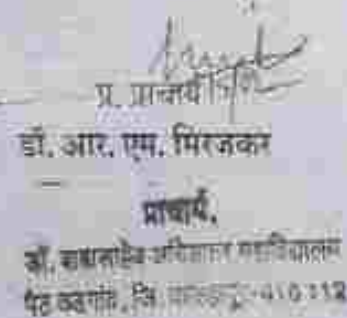 प्र. प्राचार्य
डॉ. आर. एम. मिरजकर
प्राचार्य.
डॉ. बाबासाहेब महाविद्यालय
पेठ वडगांव, जि. 416112